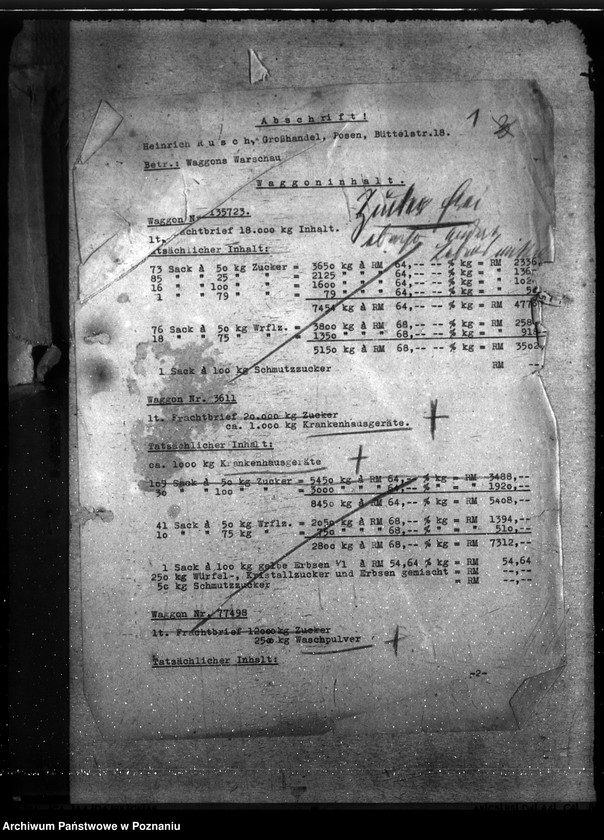 Abschrift!
1
Heinrich Rusch, Großhandel, Posen, Büttelstr.18.
Betr.: Waggons Warschau
Waggoninhalt.
Zucker frei
Waggon Nr. 135723.
lt. Frachtbrief 18.000 kg Inhalt.
Tatsächlicher Inhalt:
73 Sack à 50 kg Zucker = 3650 kg à RM 64,-- -- % kg = RM 2336
85 " " 25 " " = 2125 " " " 64,-- -- % " " 136
16 " " 100 " " = 1600 " " " 64,-- -- % " " 102
1 " 79 " " = 79 " " " 64,-- -- % " "
7454 kg à RM 64,-- -- % kg = RM 477
76 Sack à 50 kg Wrflz. = 3800 kg à RM 68,-- -- % kg = RM 258
18 " " 75 " " = 1350 " " " 68,-- -- % kg " " 918
5150 kg à RM 68,-- -- % kg = RM 3502
1 Sack à 100 kg Schmutzzucker RM --
Waggon Nr. 3611
lt. Frachtbrief 20.000 kg Zucker
ca. 1.000 kg Krankenhausgeräte.
Tatsächlicher Inhalt:
ca. 1000 kg Krankenhausgeräte
109 Sack à 50 kg Zucker = 5450 kg à RM 64,-- % kg = RM 3488,--
30 " " 100 " " = 3000 " " " 64,-- % " " " 1920,--
8450 kg à RM 64,-- % kg = RM 5408,--
41 Sack à 50 kg Wrflz. = 2050 kg à RM 68,-- % kg = RM 1394,--
10 " " 75 kg " = 750 " " " 68,-- % kg = RM 510,--
2800 kg à RM 68,-- % kg = RM 7312,--
1 Sack à 100 kg gelbe Erbsen 1/1 à RM 54,64 % kg = RM 54,64
250 kg Würfel-, Kristallzucker und Erbsen gemischt = RM --,--
50 kg Schmutzzucker = RM --,--
Waggon Nr. 77498
lt. Frachtbrief 12000 kg Zucker
2500 kg Waschpulver
Tatsächlicher Inhalt:
-2-
Archiwum Państwowe w Poznaniu